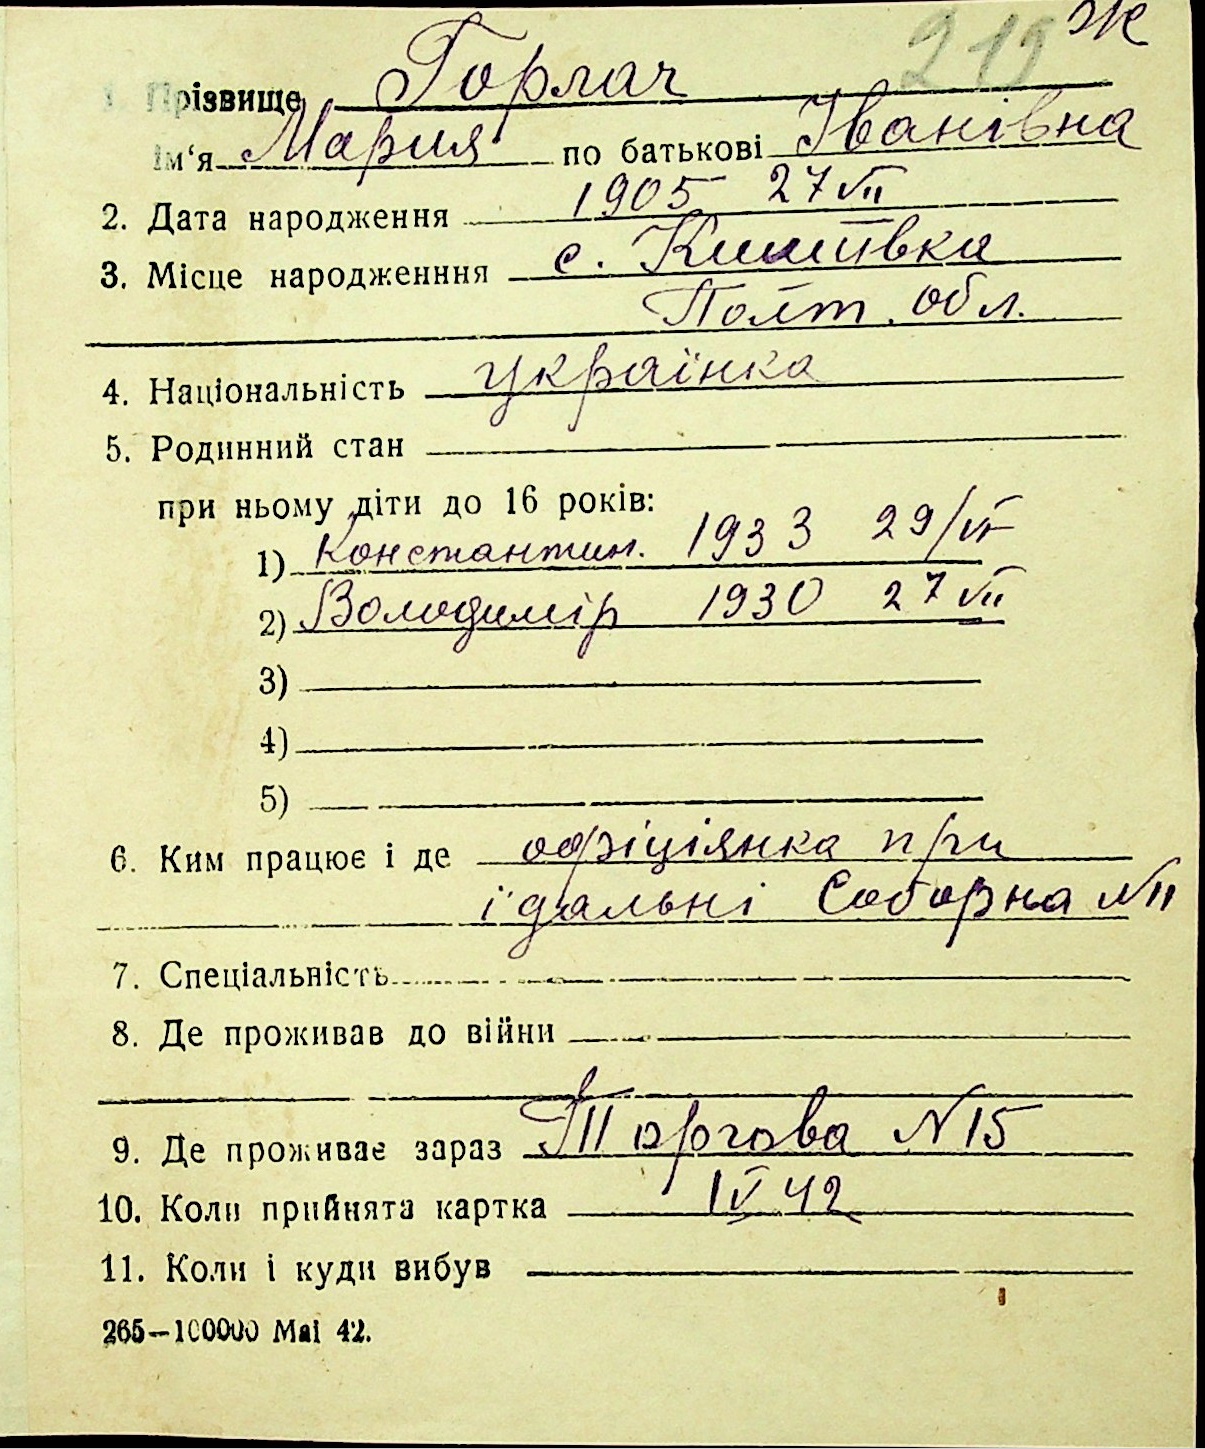 219 Ж
1. Прізвище Горлач
Ім‘я Мария по батькові Іванівна
2. Дата народження 1905 27 VII
3. Місце народженння с.
Полт. обл.
4. Національність українка
5. Родинний стан
при ньому діти до 16 років:
1) Константин. 1933 29/VI
2) Володимір 1930 27 VII
3)
4)
5)
6. Ким працює і де офіціянка при
їдальні Соборна N 11
7. Спеціальність
8. Де проживав до війни
9. Де проживає зараз Торгова N 15
10. Коли прийнята картка IV 42
11. Коли і куди вибув
265—100000 Mai 42.